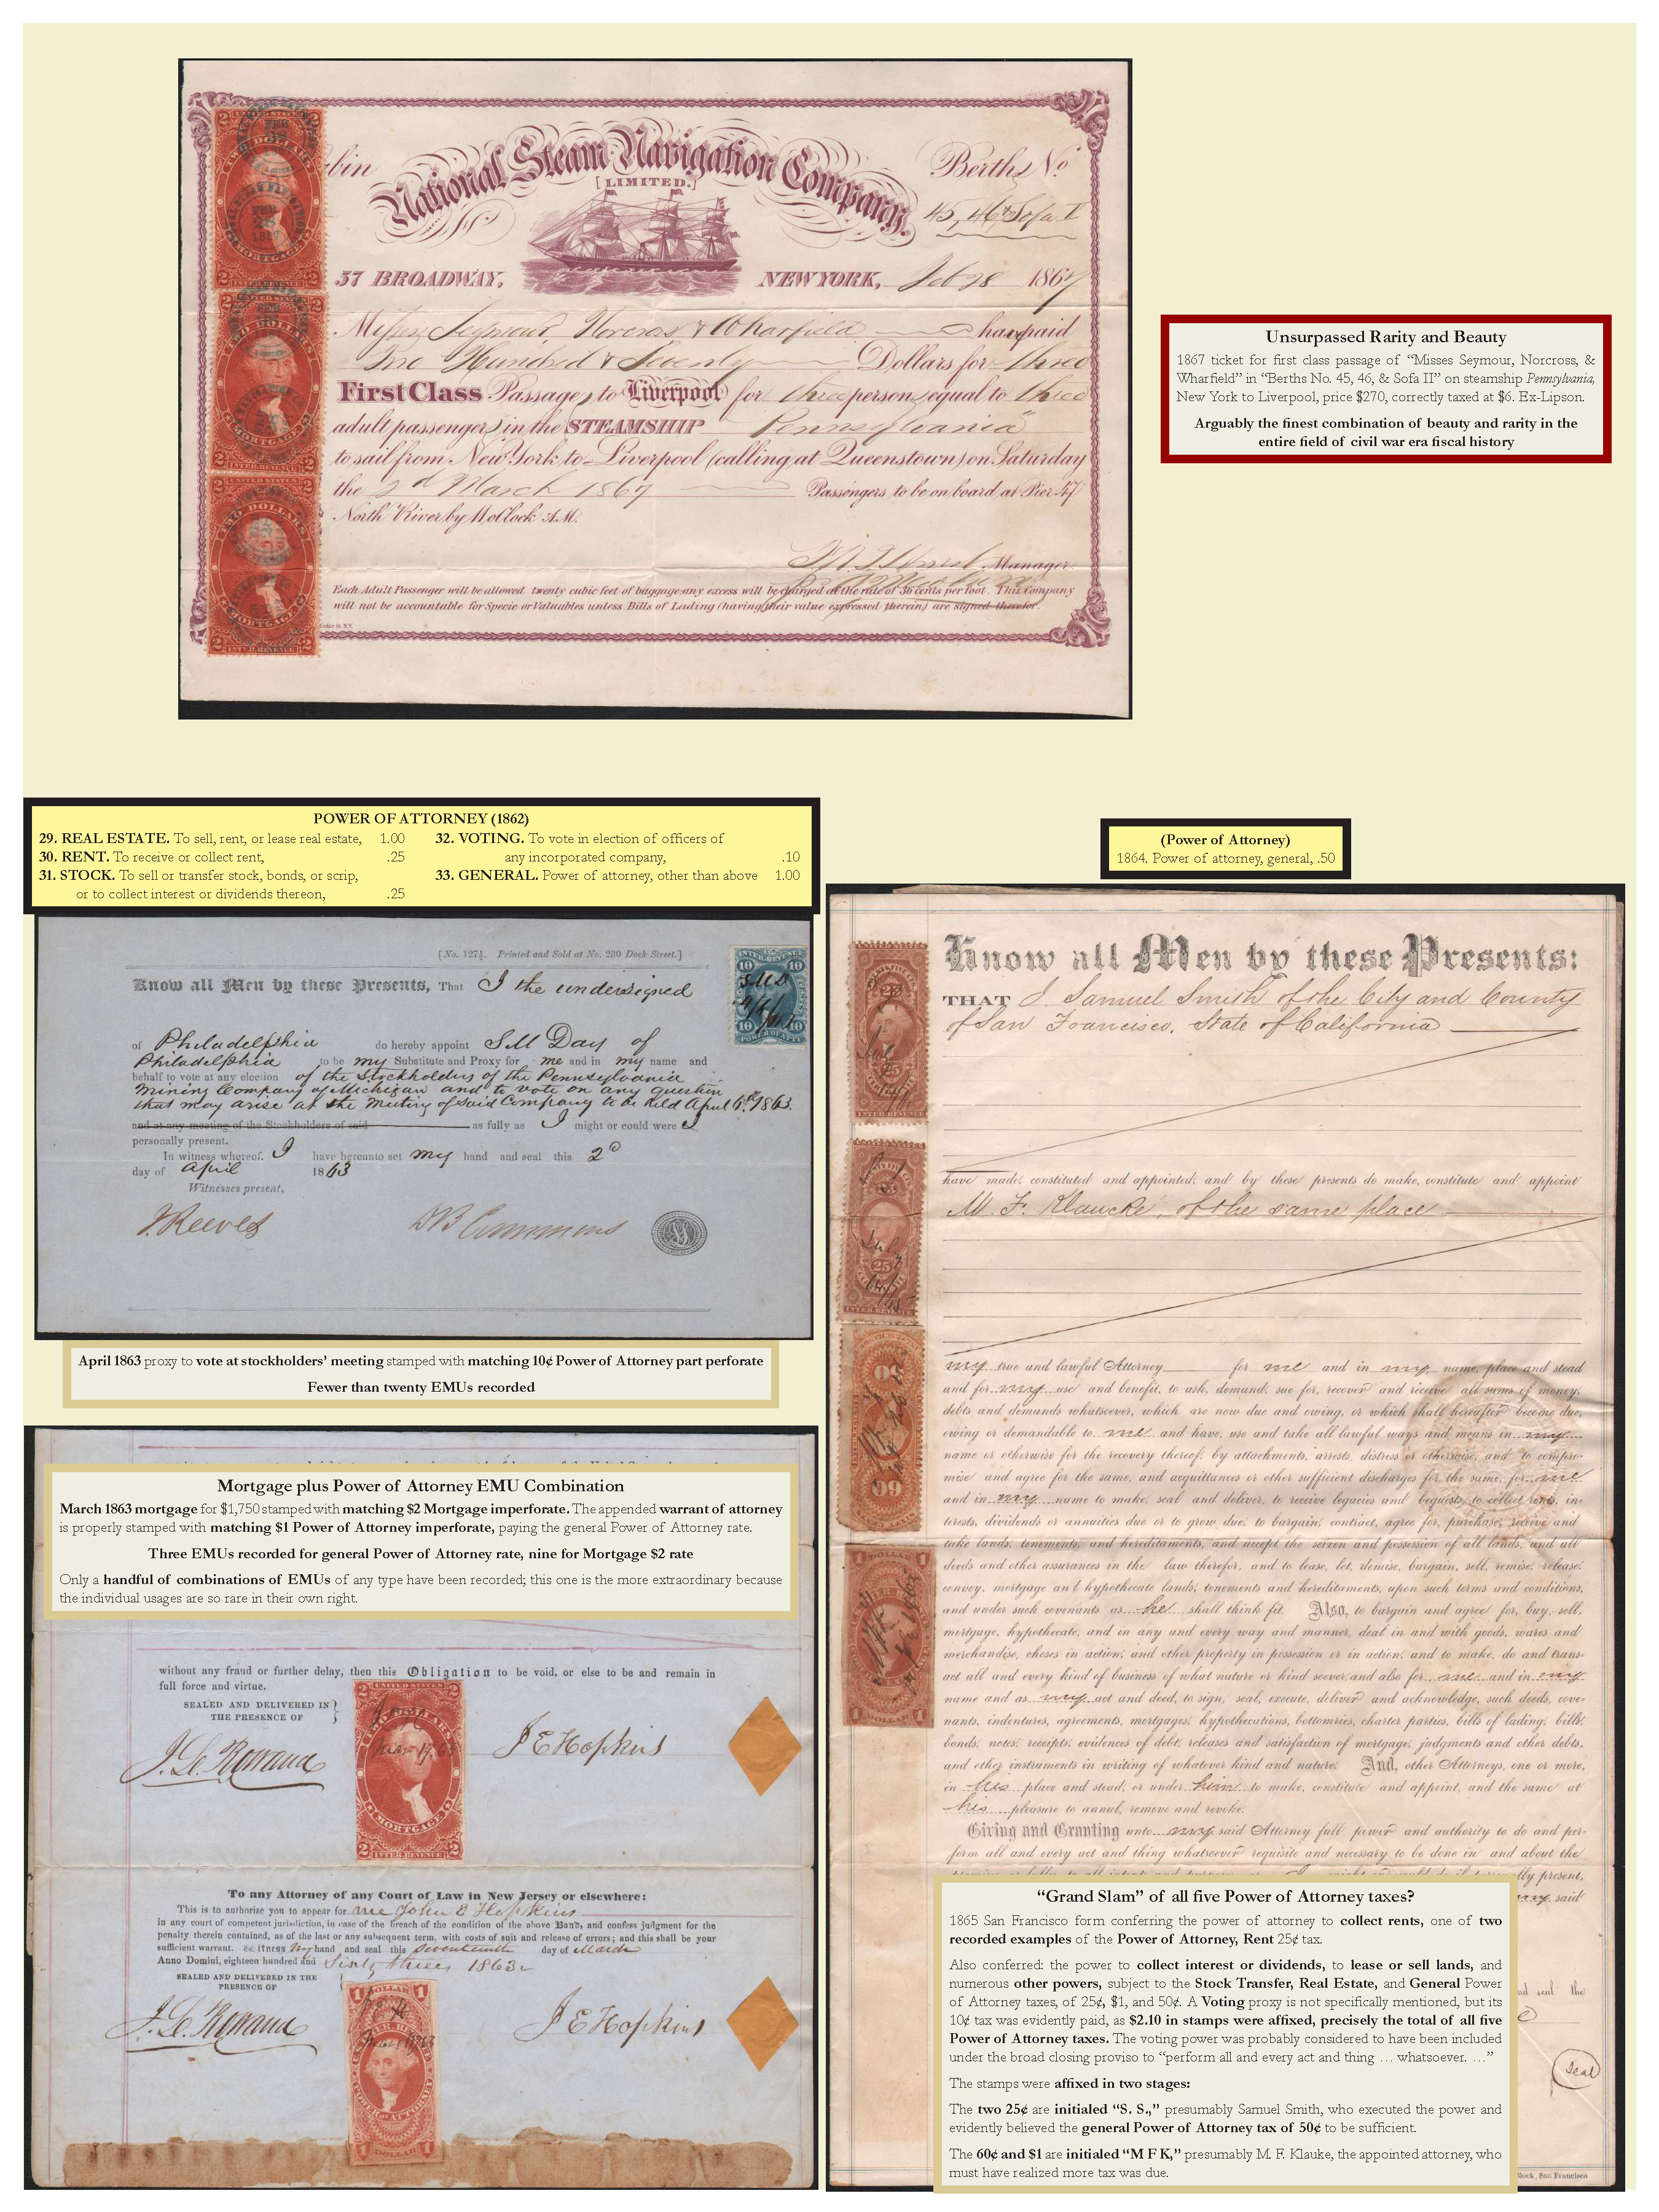 bin
National Steam Navigation Company.
[LIMITED.]
Berths No.
45, 46 & Sofa II
37 BROADWAY, NEW YORK, Feb 28 1867
Misses Seymour, Norcross & Wharfield have paid
Two Hundred & Seventy Dollars for three
First Class Passage to Liverpool for three persons equal to three
adult passengers in the STEAMSHIP Pennsylvania
to sail from New York to Liverpool (calling at Queenstown) on Saturday
the 2d March 1867 Passengers to be on board at Pier 47
North River by 11 oClock A.M.
Manager
Each Adult Passenger will be allowed twenty cubic feet of baggage any excess will be charged at the rate of 36 cents per foot. This Company
will not be accountable for Specie or Valuables unless Bills of Lading (having their value expressed therein) are signed therefor.
Unsurpassed Rarity and Beauty
1867 ticket for first class passage of “Misses Seymour, Norcross, &
Wharfield” in “Berths No. 45, 46, & Sofa II” on steamship Pennsylvania,
New York to Liverpool, price $270, correctly taxed at $6. Ex-Lipson.
Arguably the finest combination of beauty and rarity in the
entire field of civil war era fiscal history
POWER OF ATTORNEY (1862)
29. REAL ESTATE. To sell, rent, or lease real estate, 1.00
30. RENT. To receive or collect rent, .25
31. STOCK. To sell or transfer stock, bonds, or scrip,
or to collect interest or dividends thereon, .25
32. VOTING. To vote in election of officers of
any incorporated company, .10
33. GENERAL. Power of attorney, other than above 1.00
[No. 127½. Printed and Sold at No. 230 Dock Street.]
Know all Men by these Presents, That I the undersigned
of Philadelphia do hereby appoint S M Day of
Philadelphia to be my Substitute and Proxy for me and in my name and
behalf to vote at any election of the Stockholders of the Pennsylvania
Mining Company of Michigan and to vote on any question
that may arise at the Meeting of said Company to be held April 6th 1863.
and at any meeting of the Stockholders of said as fully as I might or could were I
personally present.
In witness whereof, I have hereunto set my hand and seal this 2d
day of April 1863
Witnesses present,
J. Reeves
April 1863 proxy to vote at stockholders’ meeting stamped with matching 10¢ Power of Attorney part perforate
Fewer than twenty EMUs recorded
Mortgage plus Power of Attorney EMU Combination
March 1863 mortgage for $1,750 stamped with matching $2 Mortgage imperforate. The appended warrant of attorney
is properly stamped with matching $1 Power of Attorney imperforate, paying the general Power of Attorney rate.
Three EMUs recorded for general Power of Attorney rate, nine for Mortgage $2 rate
Only a handful of combinations of EMUs of any type have been recorded; this one is the more extraordinary because
the individual usages are so rare in their own right.
without any fraud or further delay, then this Obligation to be void, or else to be and remain in
full force and virtue.
SEALED AND DELIVERED IN
THE PRESENCE OF
UNITED STATES
TWO DOLLARS
Mar 17, 63
MORTGAGE
INTER. REVENUE
J E Hopkins
To any Attorney of any Court of Law in New Jersey or elsewhere:
This is to authorize you to appear for me John E Hopkins
in any court of competent jurisdiction, in case of the breach of the condition of the above Bond, and confess judgment for the
penalty therein contained, as of the last or any subsequent term, with costs of suit and release of errors; and this shall be your
sufficient warrant. Witness my hand and seal this seventeenth day of March
Anno Domini, eighteen hundred and Sixty three 1863
SEALED AND DELIVERED IN THE
PRESENCE OF
J E Hopkins
(Power of Attorney)
1864. Power of attorney, general, .50
Know all Men by these Presents:
THAT I Samuel Smith of the City and County
of San Francisco, State of California
have made, constituted and appointed, and by these presents do make, constitute and appoint
M. F. Klaucke, of the same place
my true and lawful Attorney for me and in my name, place and stead
and for my use and benefit, to ask, demand, sue for, recover and receive all sums of money,
debts and demands whatsoever, which are now due and owing, or which shall hereafter become due,
owing or demandable to me and have, use and take all lawful ways and means in my
name or otherwise for the recovery thereof, by attachments, arrests, distress or otherwise, and to compro-
mise and agree for the same, and acquittances or other sufficient discharges for the same, for me
and in my name to make, seal and deliver, to receive legacies and bequests, to collect rents, in-
terests, dividends or annuities due or to grow due, to bargain, contract, agree for, purchase, receive and
take lands, tenements, and hereditaments, and accept the seizen and possession of all lands, and all
deeds and other assurances in the law therefor, and to lease, let, demise, bargain, sell, remise, release,
convey, mortgage and hypothecate lands, tenements and hereditaments, upon such terms and conditions,
and under such covenants as he shall think fit. Also, to bargain and agree for, buy, sell,
mortgage, hypothecate, and in any and every way and manner, deal in and with goods, wares and
merchandise, choses in action, and other property in possession or in action, and to make, do and trans-
act all and every kind of business of what nature or kind soever, and also for me and in my
name and as my act and deed, to sign, seal, execute, deliver and acknowledge, such deeds, cove-
nants, indentures, agreements, mortgages, hypothecations, bottomries, charter parties, bills of lading, bills,
bonds, notes, receipts, evidences of debt, releases and satisfaction of mortgage, judgments and other debts,
and other instruments in writing of whatever kind and nature. And, other Attorneys, one or more,
in his place and stead, or under him to make, constitute and appoint, and the same at
his pleasure to annul, remove and revoke.
Giving and Granting unto my said Attorney full power and authority to do and per-
form all and every act and thing whatsoever requisite and necessary to be done in and about the
“Grand Slam” of all five Power of Attorney taxes?
1865 San Francisco form conferring the power of attorney to collect rents, one of two
recorded examples of the Power of Attorney, Rent 25¢ tax.
Also conferred: the power to collect interest or dividends, to lease or sell lands, and
numerous other powers, subject to the Stock Transfer, Real Estate, and General Power
of Attorney taxes, of 25¢, $1, and 50¢. A Voting proxy is not specifically mentioned, but its
10¢ tax was evidently paid, as $2.10 in stamps were affixed, precisely the total of all five
Power of Attorney taxes. The voting power was probably considered to have been included
under the broad closing proviso to “perform all and every act and thing … whatsoever. …”
The stamps were affixed in two stages:
The two 25¢ are initialed “S. S.,” presumably Samuel Smith, who executed the power and
evidently believed the general Power of Attorney tax of 50¢ to be sufficient.
The 60¢ and $1 are initialed “M F K,” presumably M. F. Klauke, the appointed attorney, who
must have realized more tax was due.
seal